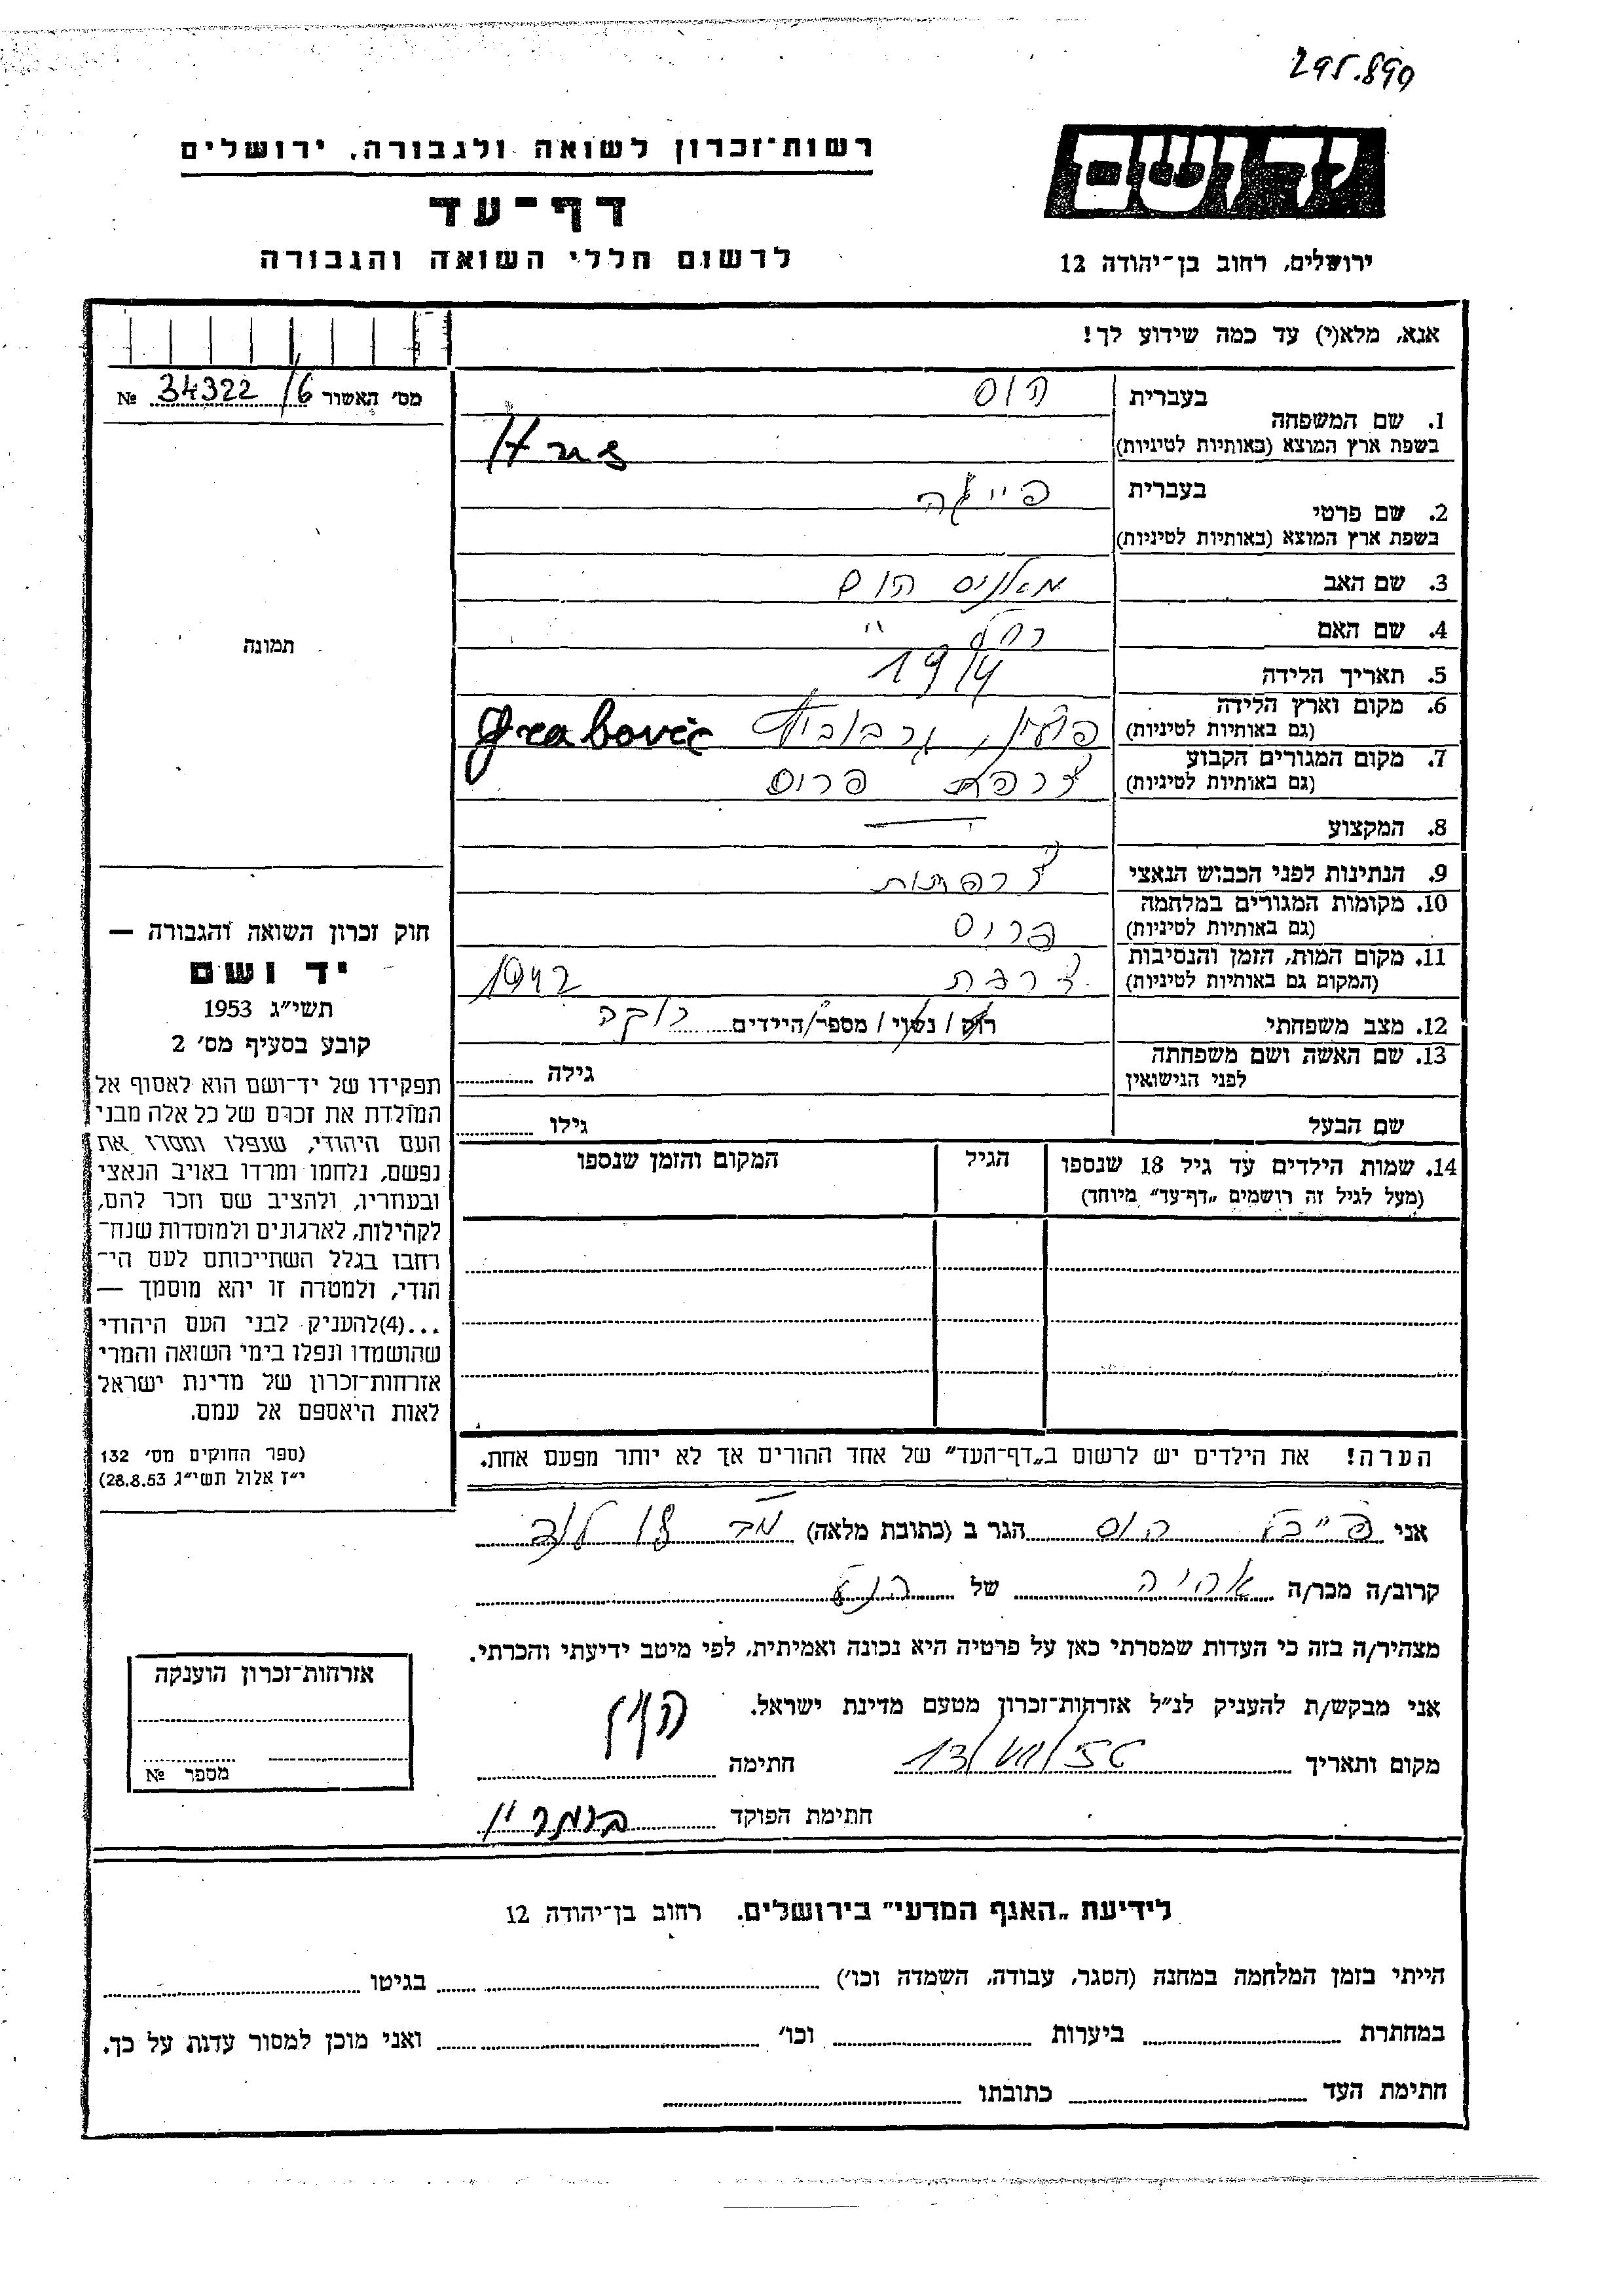 295.890
רשות־זכרון לשואה ולגבורה, ירושלים
ידושם
דף־עד
לרשום חללי השואה והגבורה
ירושלים, רחוב בן־יהודה 12
אנא, מלא(י) עד כמה שידוע לך!
מס׳ האשור 34322/6 №
1. שם המשפחה
בעברית הוס
בשפת ארץ המוצא (באותיות לטיניות) Hus
2. שם פרטי
בעברית פייגה
בשפת ארץ המוצא (באותיות לטיניות)
3. שם האב מאניס הוס
4. שם האם רחל "
5. תאריך הלידה 1914
6. מקום וארץ הלידה
(גם באותיות לטיניות) פולין, גרבוביץ Grabovic
7. מקום המגורים הקבוע
(גם באותיות לטיניות) צרפת פרוס
8. המקצוע —
9. הנתינות לפני הכבוש הנאצי צרפתית
10. מקומות המגורים במלחמה
(גם באותיות לטיניות) פרוס
11. מקום המות, הזמן והנסיבות
(המקום גם באותיות לטיניות) צרפת 1942
12. מצב משפחתי רוק / נשוי / מספר הילדים רוקה
13. שם האשה ושם משפחתה
לפני הנישואין
גילה
שם הבעל גילו
14. שמות הילדים עד גיל 18 שנספו
(מעל לגיל זה רושמים „דף־עד" מיוחד)
הגיל
המקום והזמן שנספו
תמונה
חוק זכרון השואה והגבורה —
יד ושם
תשי״ג 1953
קובע בסעיף מס׳ 2
תפקידו של יד־ושם הוא לאסוף אל
המולדת את זכרם של כל אלה מבני
העם היהודי, שנפלו ומסרו את
נפשם, נלחמו ומרדו באויב הנאצי
ובעוזריו, ולהציב שם וזכר להם,
לקהילות, לארגונים ולמוסדות שנח־
רחבו בגלל השתייכותם לעם הי־
הודי, ולמטרה זו יהא מוסמך —
...(4)להעניק לבני העם היהודי
שהושמדו ונפלו בימי השואה והמרי
אזרחות־זכרון של מדינת ישראל
לאות היאספם אל עמם.
(ספר החוקים מס׳ 132
י״ז אלול תשי״ג 28.8.53)
הערה! את הילדים יש לרשום ב„דף־העד" של אחד ההורים אך לא יותר מפעם אחת.
אני הוס הגר ב (כתובת מלאה) לוד
קרוב/ה מכר/ה של
מצהיר/ה בזה כי העדות שמסרתי כאן על פרטיה היא נכונה ואמיתית, לפי מיטב ידיעתי והכרתי.
אני מבקש/ת להעניק לנ״ל אזרחות־זכרון מטעם מדינת ישראל.
מקום ותאריך 13/VIII/56 חתימה
חתימת הפוקד
אזרחות־זכרון הוענקה
מספר №
לידיעת „האגף המדעי" בירושלים. רחוב בן־יהודה 12
הייתי בזמן המלחמה במחנה (הסגר, עבודה, השמדה וכו׳) בגיטו
במחתרת ביערות וכו׳ ואני מוכן למסור עדות על כך.
חתימת העד כתובתו